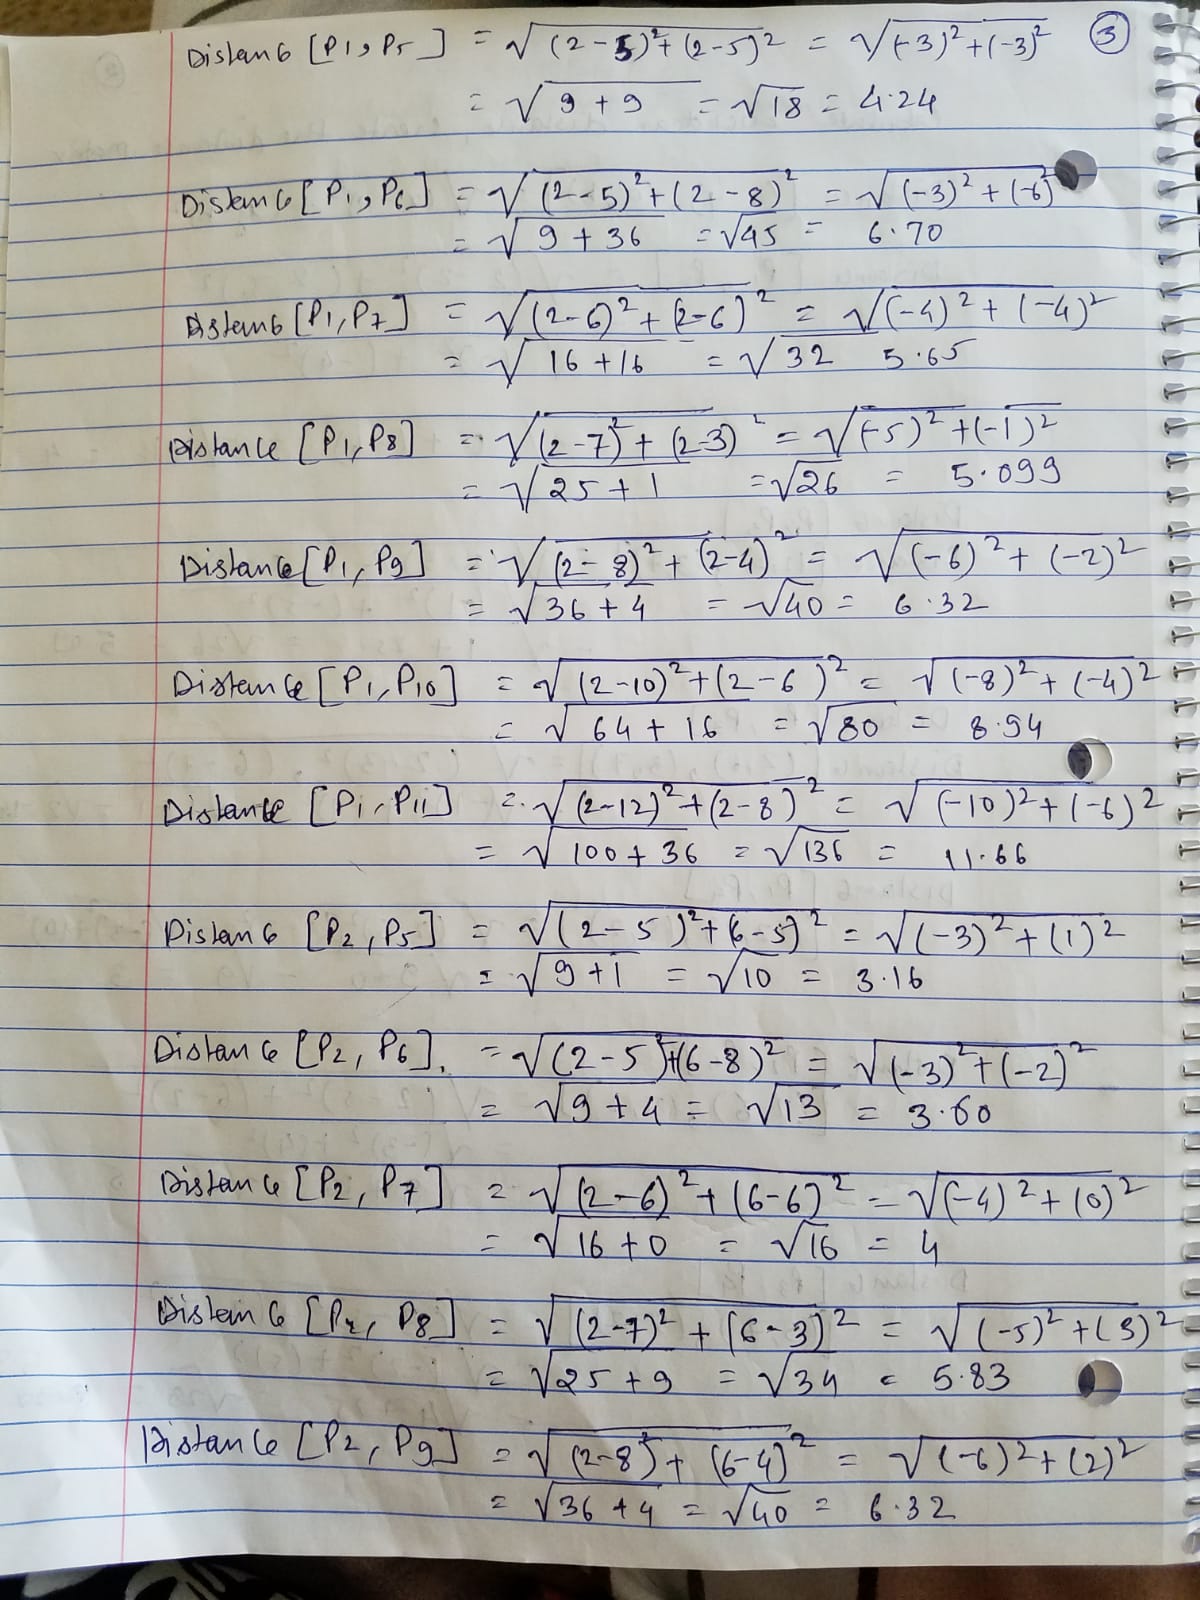 ③
Distance [P1, P5] = √(2-5)²+(2-5)² = √(-3)²+(-3)²
= √9+9 = √18 = 4.24
Distance [P1, P6] = √(2-5)²+(2-8)² = √(-3)²+(-6)²
= √9+36 = √45 = 6.70
Distance [P1, P7] = √(2-6)²+(2-6)² = √(-4)²+(-4)²
= √16+16 = √32 5.65
Distance [P1, P8] = √(2-7)²+(2-3)² = √(-5)²+(-1)²
= √25+1 = √26 = 5.099
Distance [P1, P9] = √(2-8)²+(2-4)² = √(-6)²+(-2)²
= √36+4 = √40 = 6.32
Distance [P1, P10] = √(2-10)²+(2-6)² = √(-8)²+(-4)²
= √64+16 = √80 = 8.94
Distance [P1, P11] = √(2-12)²+(2-8)² = √(-10)²+(-6)²
= √100+36 = √136 = 11.66
Distance [P2, P5] = √(2-5)²+(6-5)² = √(-3)²+(1)²
= √9+1 = √10 = 3.16
Distance [P2, P6]. = √(2-5)²+(6-8)² = √(-3)²+(-2)²
= √9+4 = √13 = 3.60
Distance [P2, P7] = √(2-6)²+(6-6)² = √(-4)²+(0)²
= √16+0 = √16 = 4
Distance [P2, P8] = √(2-7)²+(6-3)² = √(-5)²+(3)²
= √25+9 = √34 = 5.83
Distance [P2, P9] = √(2-8)²+(6-4)² = √(-6)²+(2)²
= √36+4 = √40 = 6.32